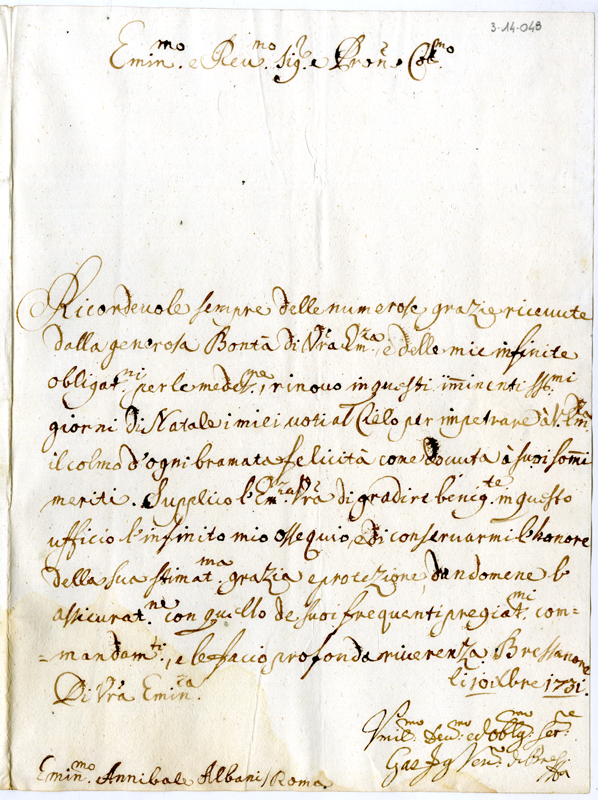 3-14-048
Emin.mo e Reu.mo Sig.r e Pron.e Col.mo
Ricordeuole sempre delle numerose grazie riceuute
dalla generosa Bontà di Vrā Em.za, è delle mie infinite
obligat.ni per le medes.me, rinouo in questi im̄inenti ss.mi
giorni di Natale i miei uoti al Cielo per impetrare à V. Em.za
il colmo d'ogni bramata felicità come douuta à suoi som̄i
meriti. Supplico l'Em.za Vrā di gradire benig.te in questo
ufficio l'infinito mio ossequio, e di conseruarmi l'honore
della sua stimat.ma grazia e protezione, dandomene l'
assicurat.ne con quello de suoi frequenti pregiat.mi com-
=mandam.ti, e le facio profonda riuerenza. Bressanone
li 10 Xbre 1731.
Di Vrā Emin.za
Vmil.mo Deu.mo ed oblig.mo Ser.re
Gas Ig Ves.o di Bress
Emin.mo Annibale Albani / Roma.